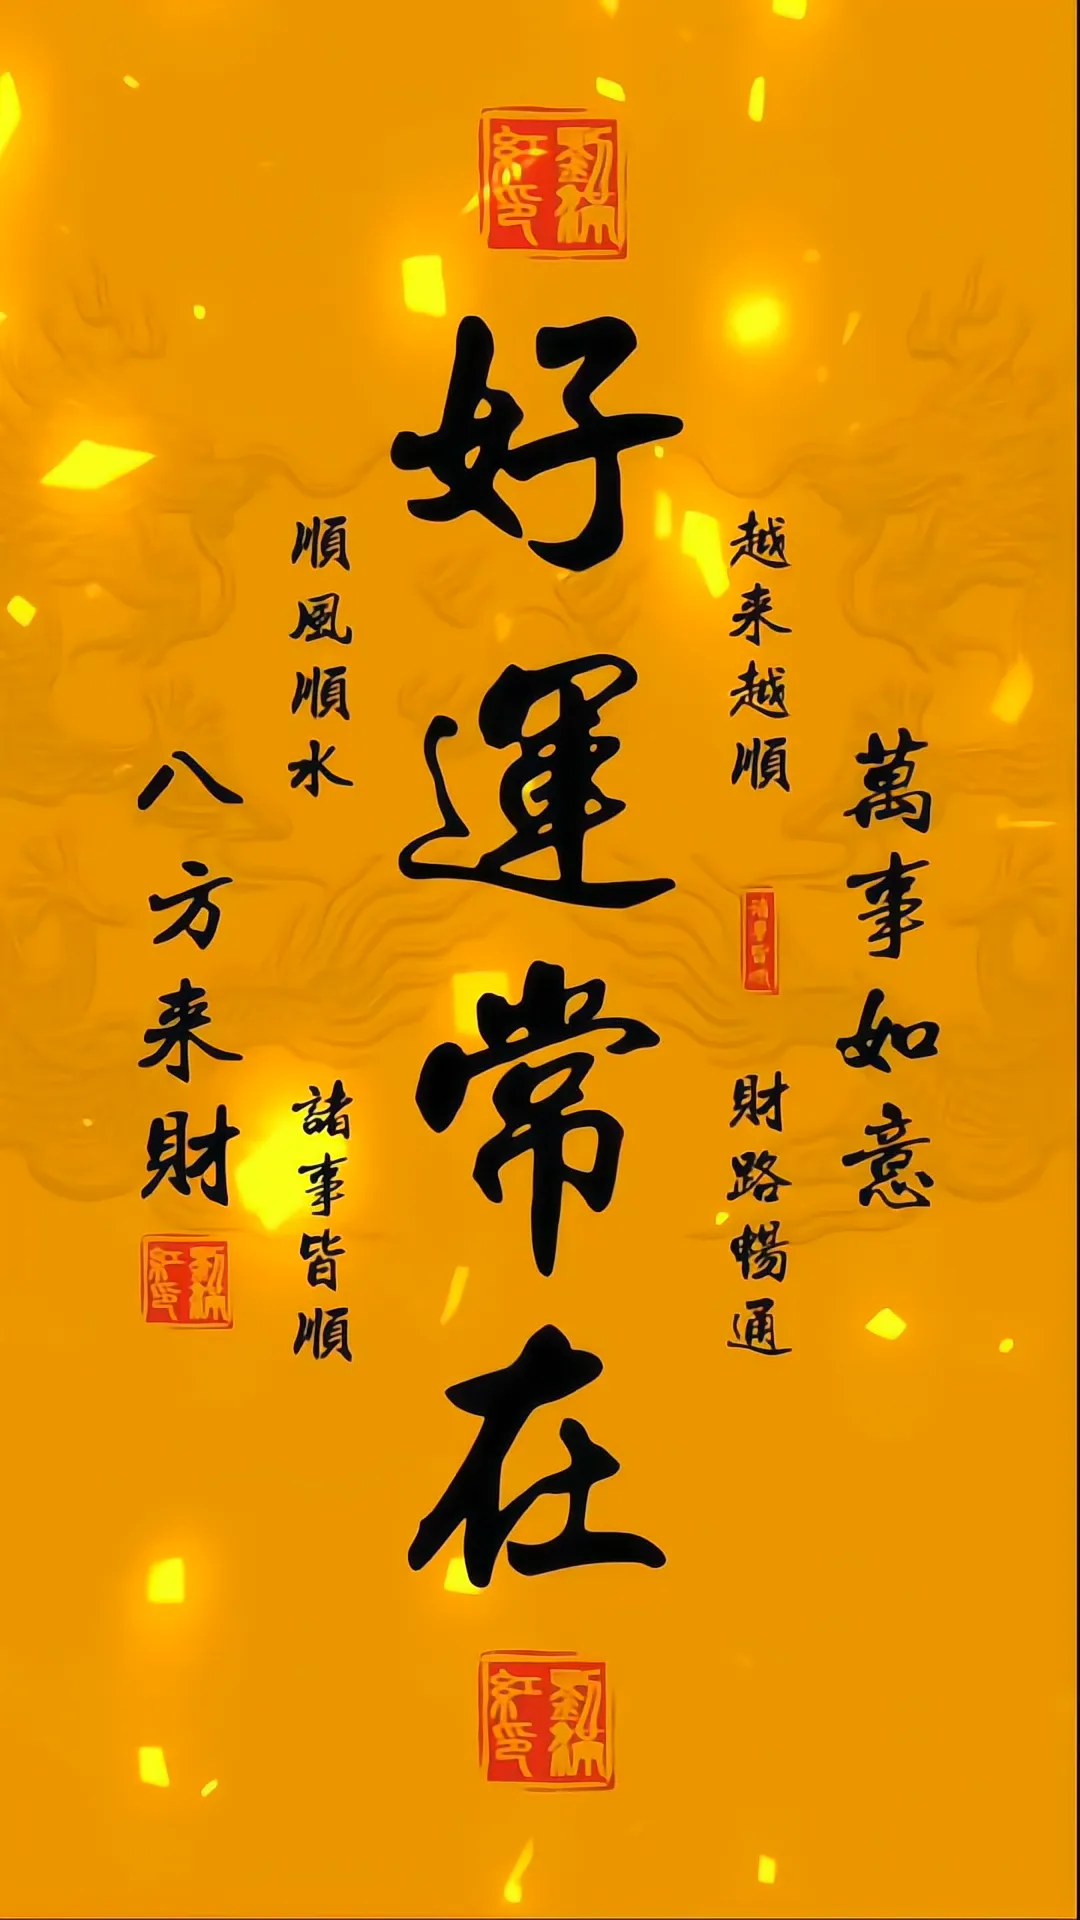 萬事如意
越来越順
財路暢通
好運常在
順風順水
諸事皆順
八方来財